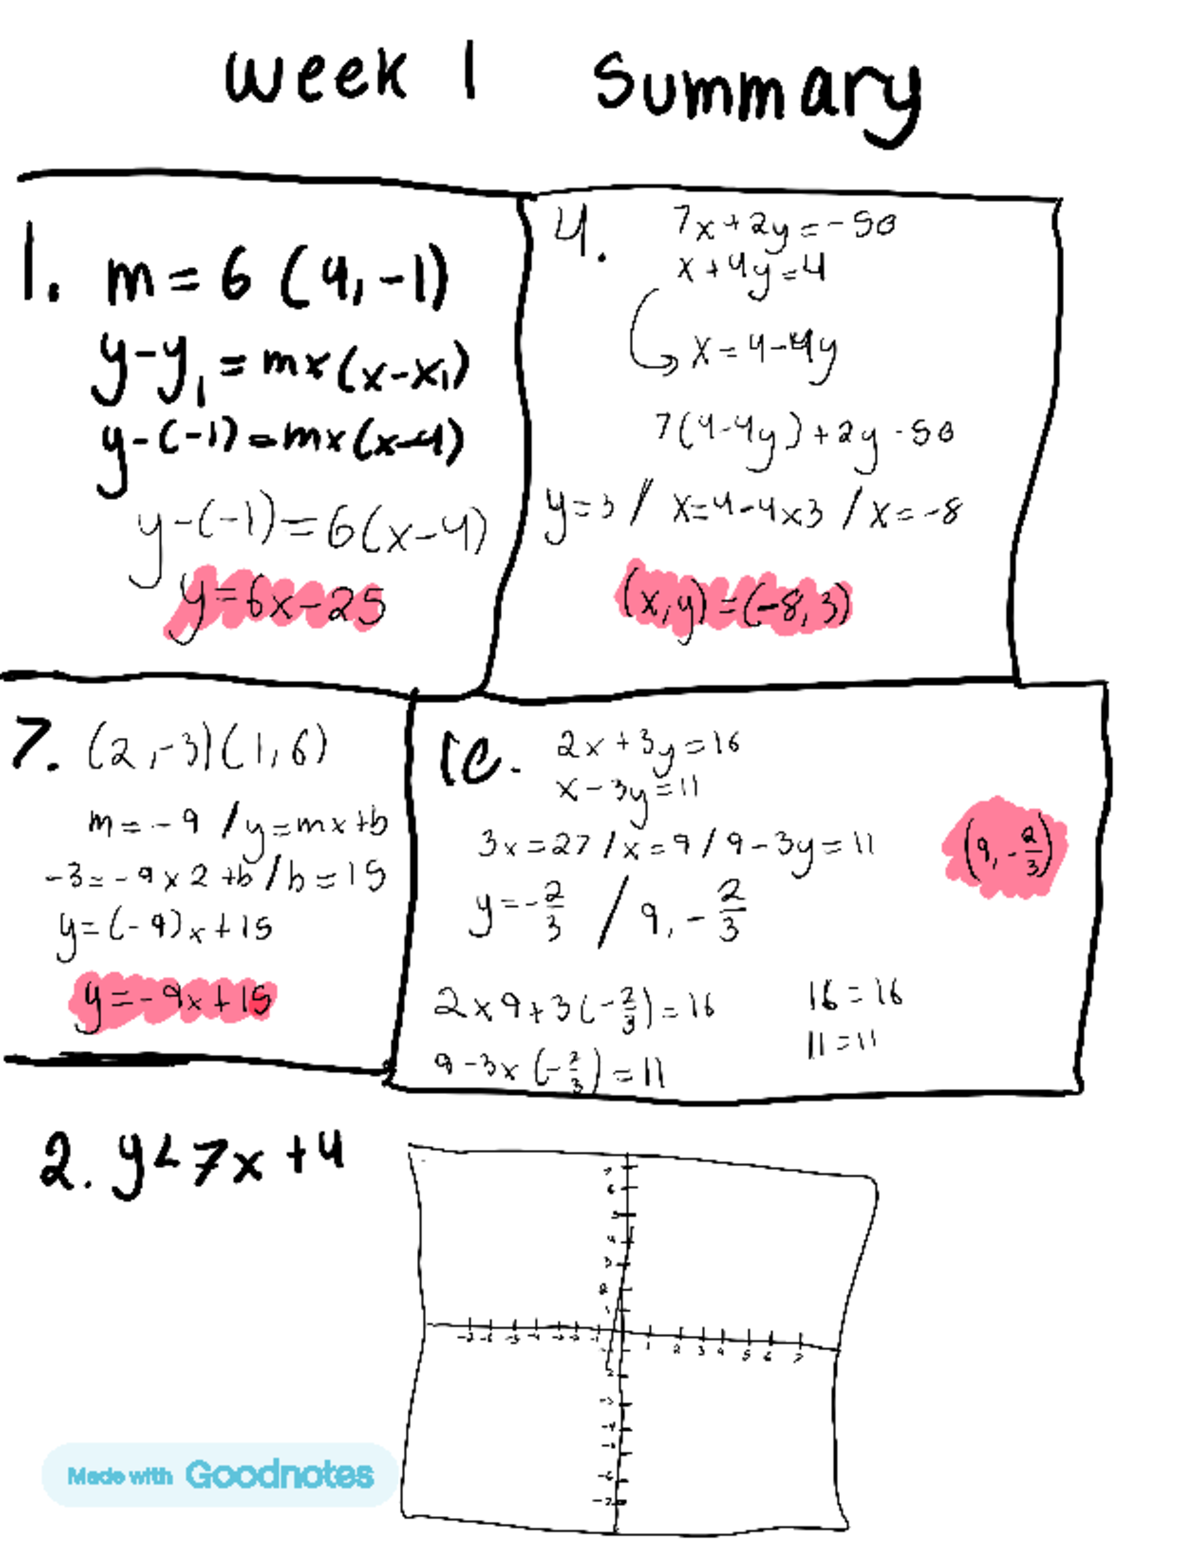 Week 1 Summary
1. m = 6 (4, -1)
y-y₁ = mx(x-x₁)
y-(-1) = mx(x-4)
y-(-1) = 6(x-4)
y=6x-25
4. 7x+2y=-50
x+4y=4
x=4-4y
7(4-4y)+2y-50
y=3 / x=4-4x3 / x=-8
(x,y)=(-8,3)
7. (2,-3)(1,6)
m=-9 / y=mx+b
-3=-9x2+b / b=15
y=(-9)x+15
y=-9x+15
10. 2x+3y=16
x-3y=11
3x=27 / x=9 / 9-3y=11
y=-2/3 / 9,-2/3
(9,-2/3)
2x9+3(-2/3)=16
16=16
9-3x(-2/3)=11
11=11
2. y<7x+4
7
6
5
4
3
2
1
1 2 3 4 5 6 7
-3
-4
-6
-7
Made with Goodnotes